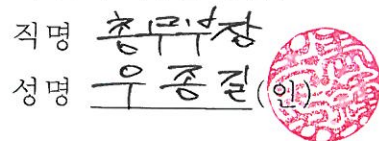 직명 총무부장
성명 우종질(인)